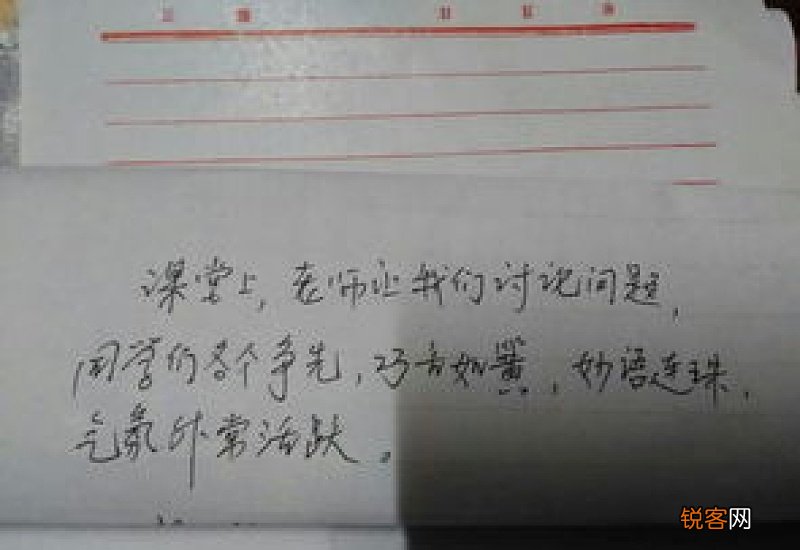 课堂上，老师让我们讨论问题，
同学们各个争先，巧舌如簧，妙语连珠，
气氛非常活跃。
锐客网